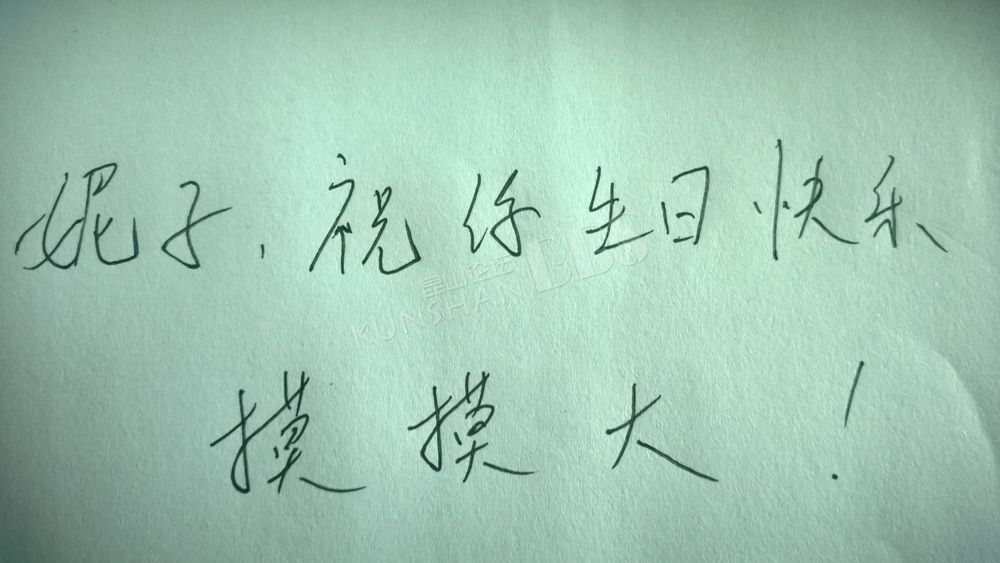 妮子,祝你生日快乐
昆山论坛 BBS
KUNSHAN
摸摸大!